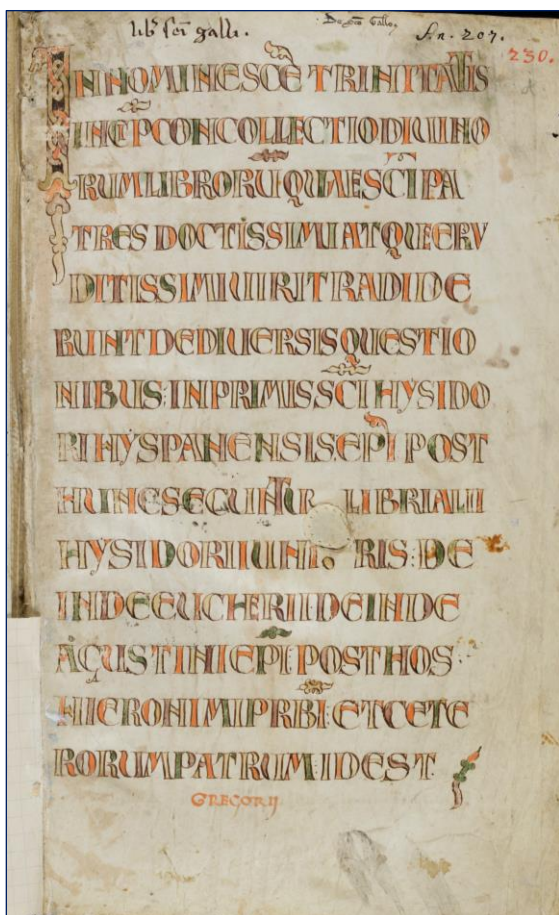 lib̄ sc̄i galli.
Sn. 207.
230.
IN NOMINE SC̄E TRINITATIS
INCIP CON COLLECTIO DIUINO
RUM LIBRORŪ QUAE SC̄I PA
TRES DOCTISSIMI ATQUE ERV
DITISSIMI UIRI TRADIDE
RUNT DE DIUERSIS QUESTIO
NIBUS: IN PRIMIS SC̄I HYSIDO
RI HYSPANENSIS EP̄I POST
HUNC SEQUNTUR LIBRI ALII
HYSIDORI IUNI RIS: DE
INDE EUCHERII DEINDE
AGUSTINI EPI: POST HOS
HIERONIMI PRBI: ET CETE
RORUM PATRUM: ID EST
GREGORIJ